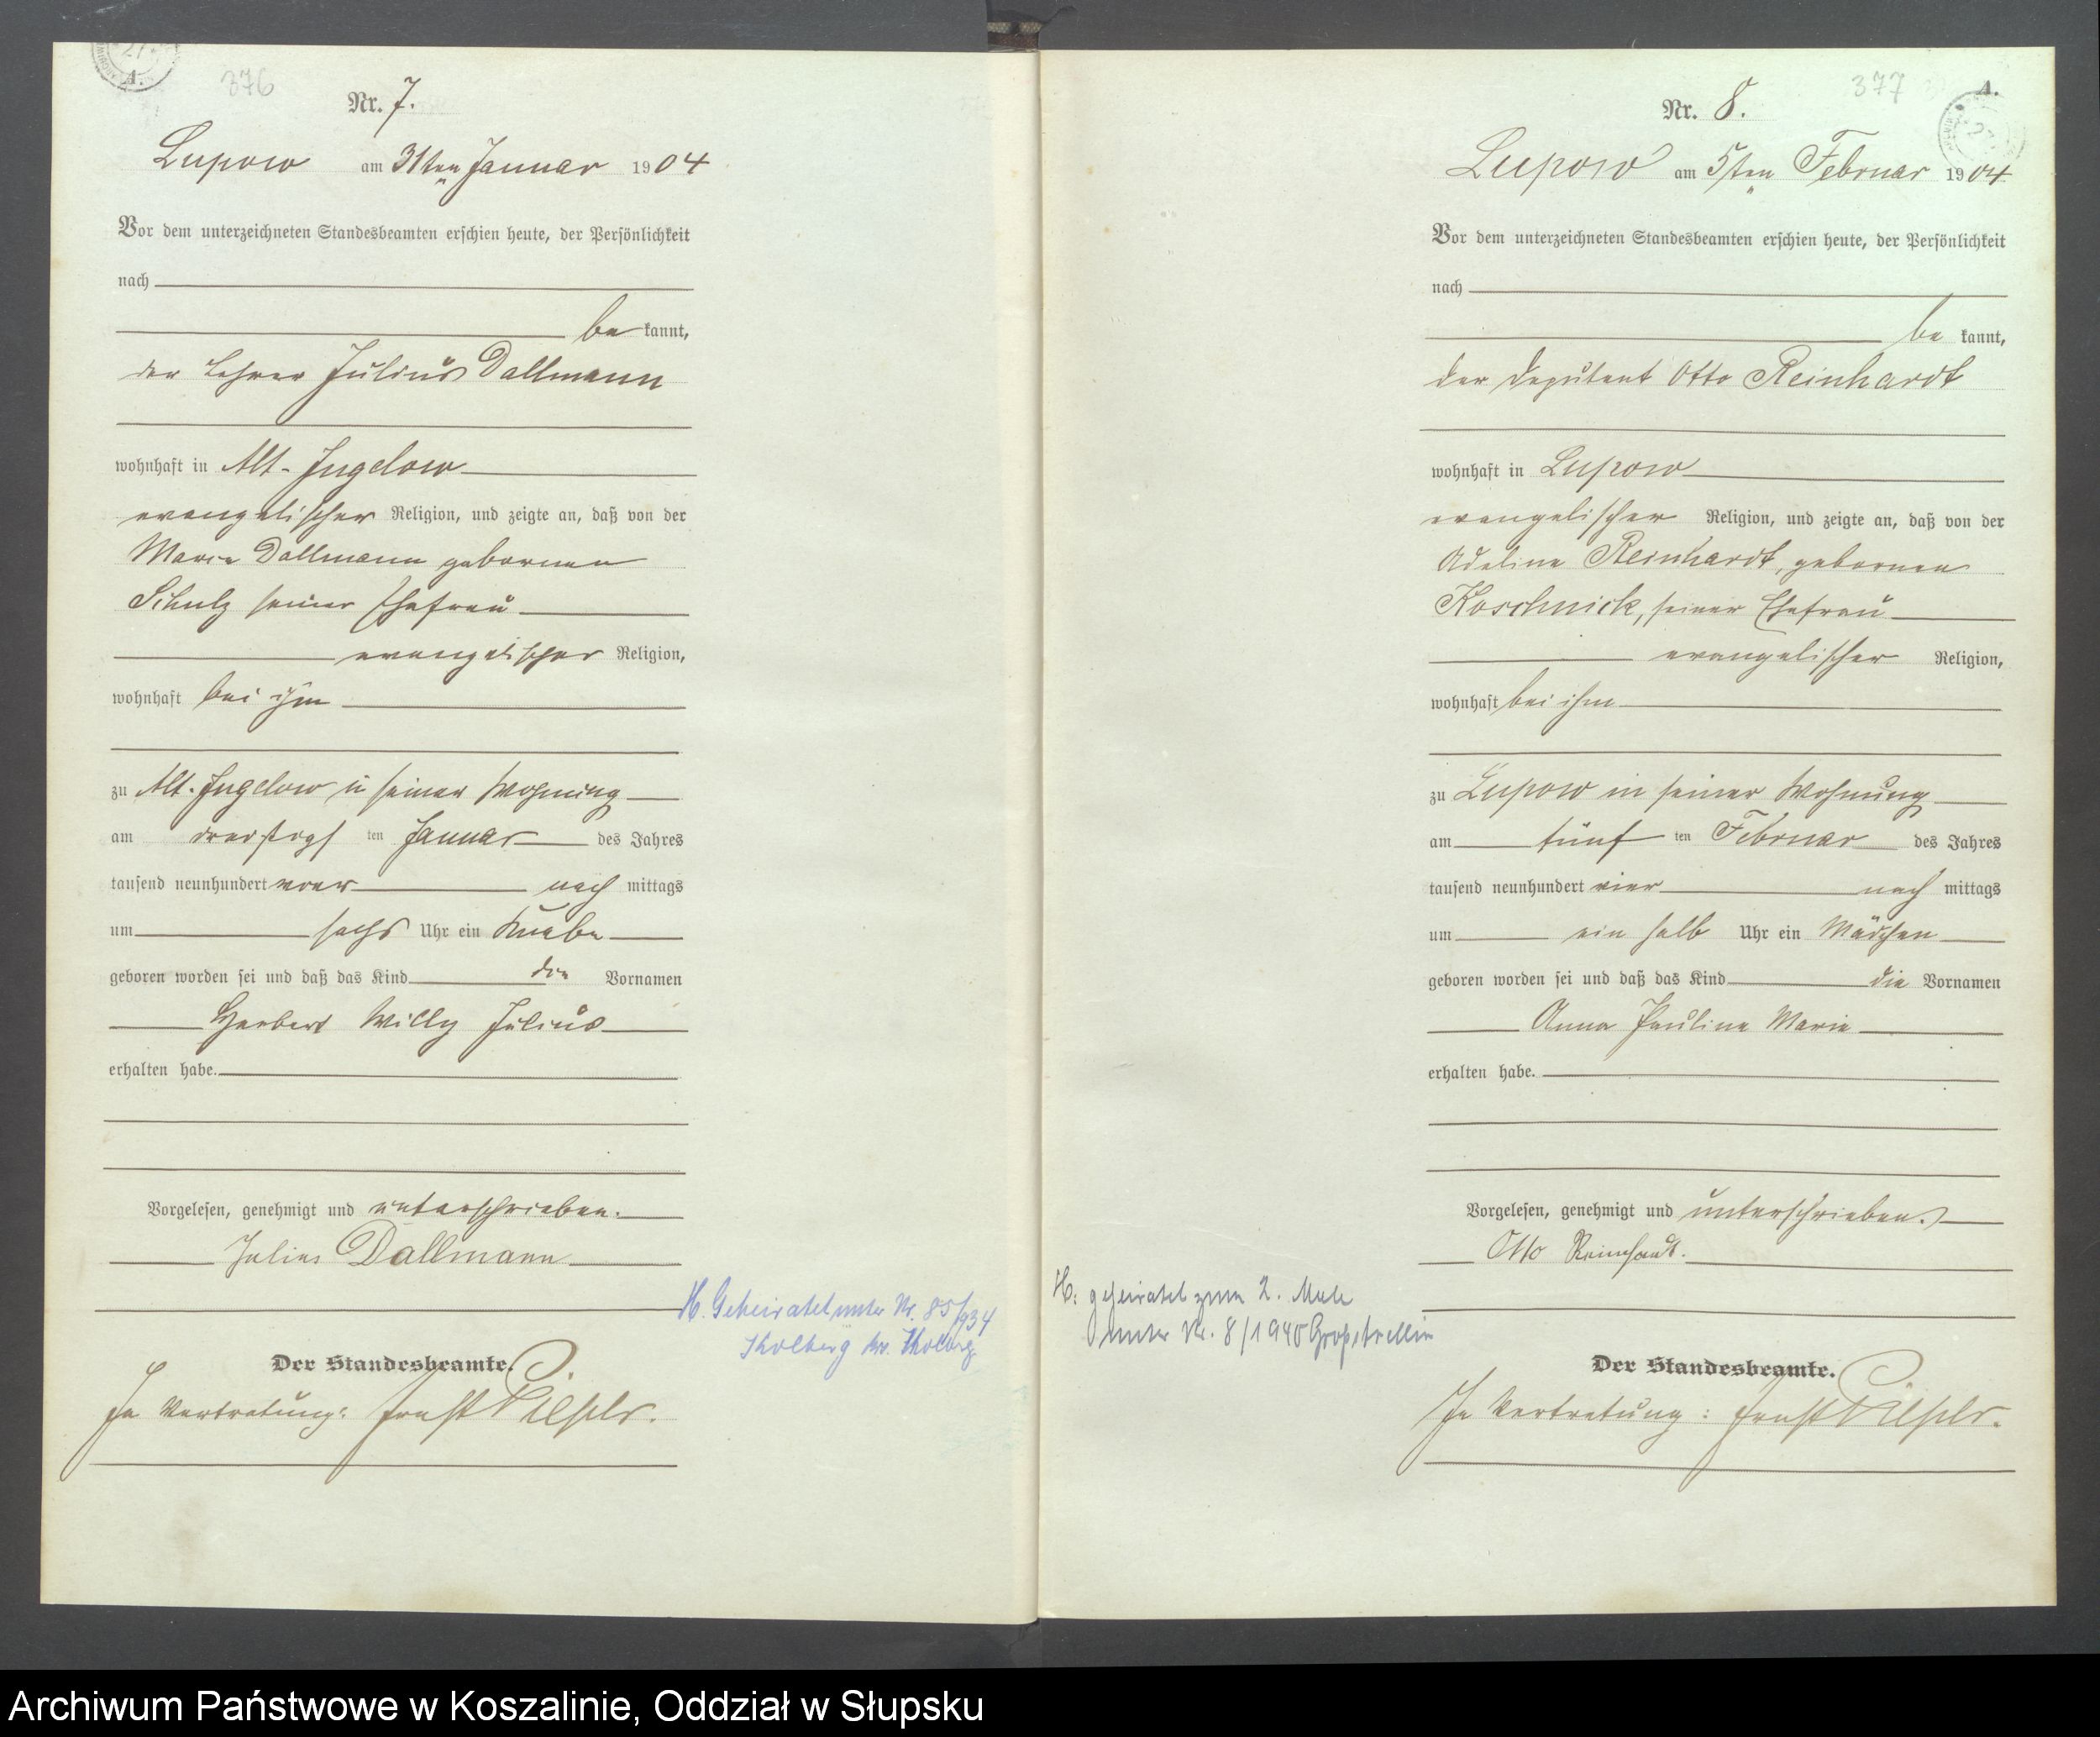 376
Nr. 7.
Lupow am 31ten Januar 1904
Vor dem unterzeichneten Standesbeamten erschien heute, der Persönlichkeit
nach
be kannt,
der Lehrer Julius Dallmann
wohnhaft in Alt-Jugelow
evangelischer Religion, und zeigte an, daß von der
Marie Dallmann geborenen
Schulz seiner Ehefrau
evangelischer Religion,
wohnhaft bei ihm
zu Alt-Jugelow in seiner Wohnung
am dreißigs ten Januar des Jahres
tausend neunhundert vier nach mittags
um sechs Uhr ein Knabe
geboren worden sei und daß das Kind die Vornamen
Herbert Willy Julius
erhalten habe.
Vorgelesen, genehmigt und unterschrieben.
Julius Dallmann
H. Geheiratet unter Nr. 85/934
Kolberg
Der Standesbeamte.
In Vertretung: Ernst
377
A.
Nr. 8.
Lupow am 5ten Februar 1904
Vor dem unterzeichneten Standesbeamten erschien heute, der Persönlichkeit
nach
be kannt,
der Deputant Otto Reinhardt
wohnhaft in Lupow
evangelischer Religion, und zeigte an, daß von der
Adeline Reinhardt, geborenen
Koschnick, seiner Ehefrau
evangelischer Religion,
wohnhaft bei ihm
zu Lupow in seiner Wohnung
am fünf ten Februar des Jahres
tausend neunhundert vier nach mittags
um ein halb Uhr ein Mädchen
geboren worden sei und daß das Kind die Vornamen
Anna Pauline Marie
erhalten habe.
Vorgelesen, genehmigt und unterschrieben.
Otto Reinhardt.
H: geheiratet zum 2. Male
unter Nr. 8/1940 Großstrellin
Der Standesbeamte.
In Vertretung: Ernst
Archiwum Państwowe w Koszalinie, Oddział w Słupsku